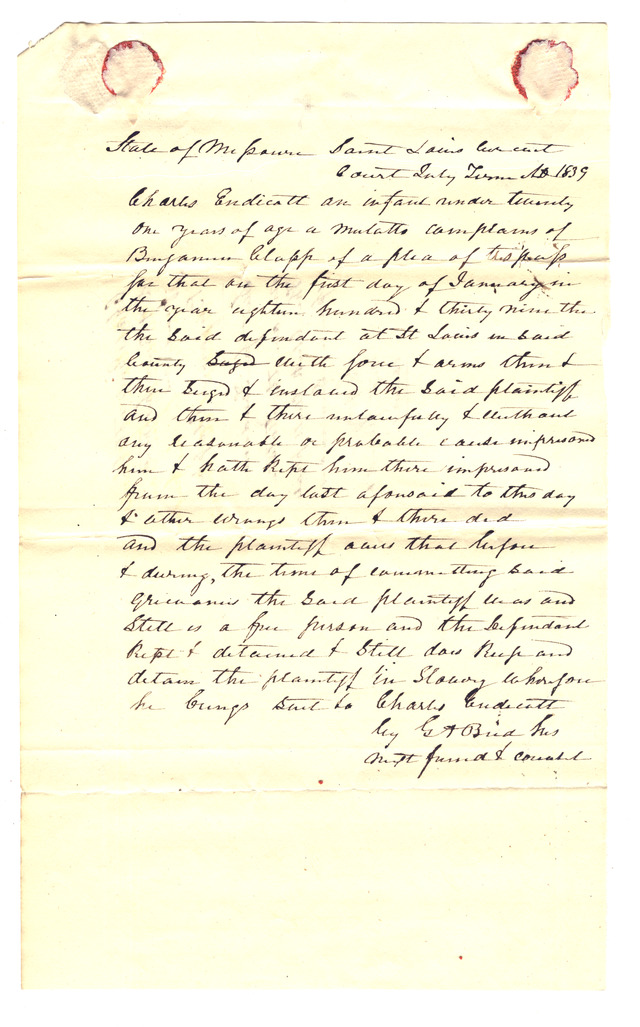 State of Missouri Saint Louis Circuit
Court July Term AD 1839
Charles Endicott an infant under twenty
one years of age a mulatto complains of
Benjamin Clapp of a plea of trespass
for that on the first day of January in
the year eighteen hundred & thirty nine the
the said defendant at St Louis in said
County Seizd with force & arms then &
there Seizd & enslaved the said plaintiff
and then & there unlawfully & without
any reasonable or probable cause imprisoned
him & hath Kept him there imprisoned
from the day last aforesaid to this day
& other wrongs then & there did
and the plaintiff avers that before
& during, the time of committing said
Grievances the said plaintiff was and
Still is a free person and the Defendant
Kept & detained & Still does Keep and
detain the plaintiff in Slavery wherefore
he brings suit &c Charles Endicott
by G A Bird his
next friend & counsel